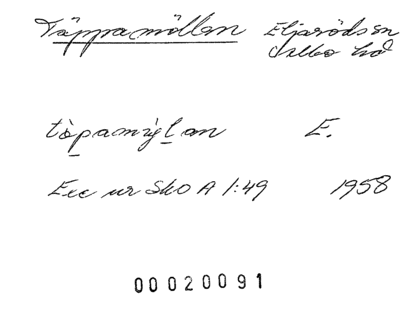 Täppamöllan Eljaröds sn
Albo hd
tòpamỳl an E.
Exc ur SkO A 1:49 1958
00020091